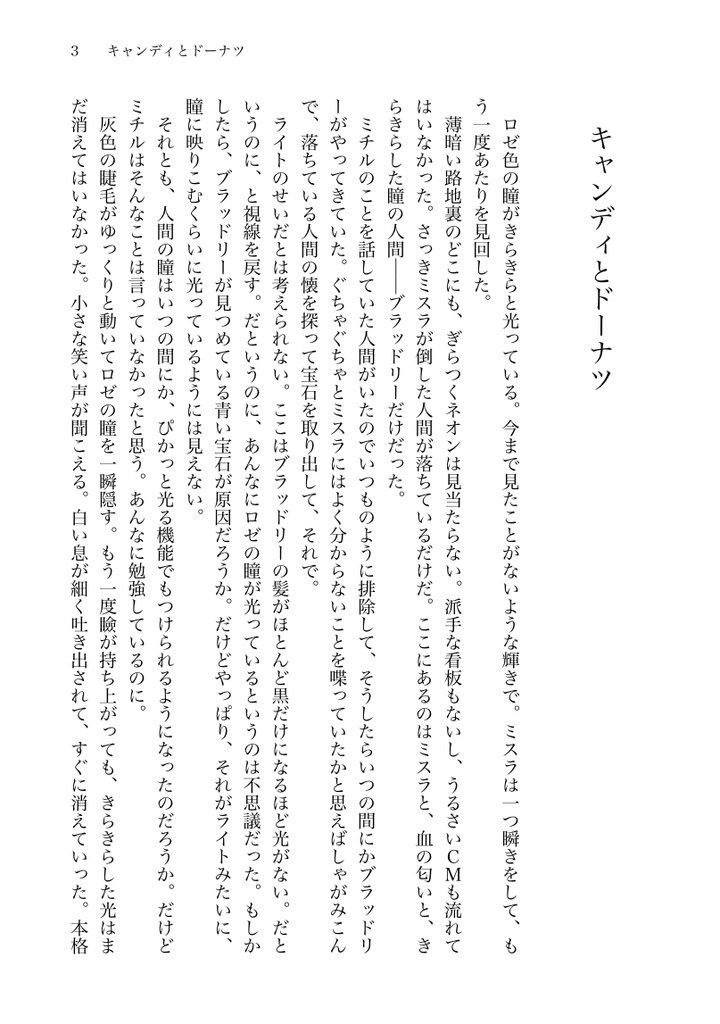 3　キャンディとドーナツ
キャンディとドーナツ
　ロゼ色の瞳がきらきらと光っている。今まで見たことがないような輝きで。ミスラは一つ瞬きをして、も
う一度あたりを見回した。
　薄暗い路地裏のどこにも、ぎらつくネオンは見当たらない。派手な看板もないし、うるさいCMも流れて
はいなかった。さっきミスラが倒した人間が落ちているだけだ。ここにあるのはミスラと、血の匂いと、き
らきらした瞳の人間――ブラッドリーだけだった。
　ミチルのことを話していた人間がいたのでいつものように排除して、そうしたらいつの間にかブラッドリ
ーがやってきていた。ぐちゃぐちゃとミスラにはよく分からないことを喋っていたかと思えばしゃがみこん
で、落ちている人間の懐を探って宝石を取り出して、それで。
　ライトのせいだとは考えられない。ここはブラッドリーの髪がほとんど黒だけになるほど光がない。だと
いうのに、と視線を戻す。だというのに、あんなにロゼの瞳が光っているというのは不思議だった。もしか
したら、ブラッドリーが見つめている青い宝石が原因だろうか。だけどやっぱり、それがライトみたいに、
瞳に映りこむくらいに光っているようには見えない。
　それとも、人間の瞳はいつの間にか、ぴかっと光る機能でもつけられるようになったのだろうか。だけど
ミチルはそんなことは言っていなかったと思う。あんなに勉強しているのに。
　灰色の睫毛がゆっくりと動いてロゼの瞳を一瞬隠す。もう一度瞼が持ち上がっても、きらきらした光はま
だ消えてはいなかった。小さな笑い声が聞こえる。白い息が細く吐き出されて、すぐに消えていった。本格